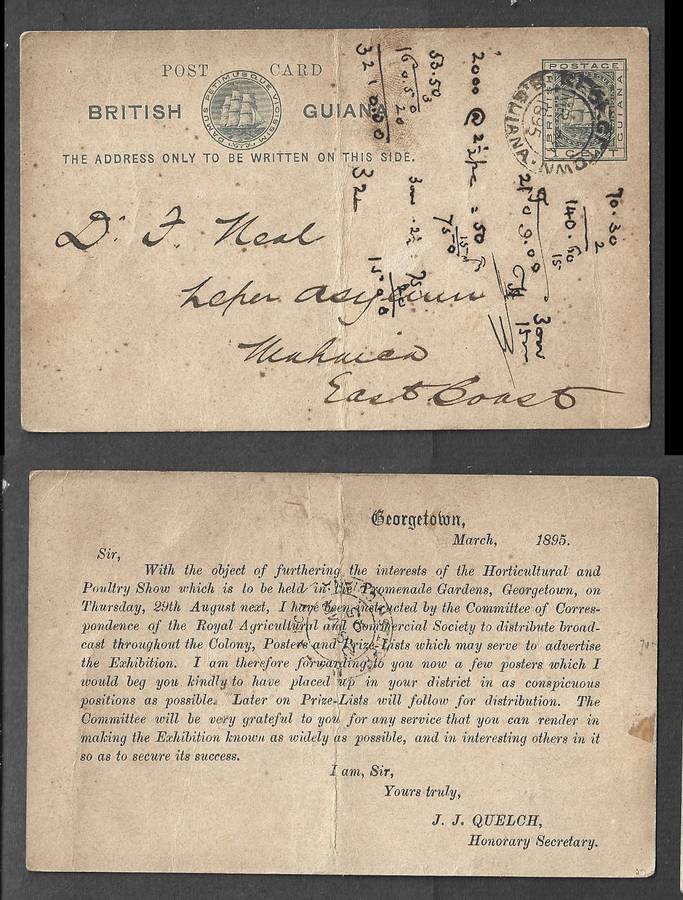 POST CARD
BRITISH GUIANA
DAMUS PETIMUSQUE VICISSIM
THE ADDRESS ONLY TO BE WRITTEN ON THIS SIDE.
POSTAGE
BRITISH
GUIANA
1 CENT
Dr. F. Neal
Leper asylum
Mahaica
East Coast
2000 @ 2½ pc = 50
53.50
70.30
2
140.60
15
Georgetown,
March, 1895.
Sir,
With the object of furthering the interests of the Horticultural and
Poultry Show which is to be held in the Promenade Gardens, Georgetown, on
Thursday, 29th August next, I have been instructed by the Committee of Corres-
pondence of the Royal Agricultural and Commercial Society to distribute broad-
cast throughout the Colony, Posters and Prize-Lists which may serve to advertise
the Exhibition. I am therefore forwarding to you now a few posters which I
would beg you kindly to have placed up in your district in as conspicuous
positions as possible. Later on Prize-Lists will follow for distribution. The
Committee will be very grateful to you for any service that you can render in
making the Exhibition known as widely as possible, and in interesting others in it
so as to secure its success.
I am, Sir,
Yours truly,
J. J. QUELCH,
Honorary Secretary.